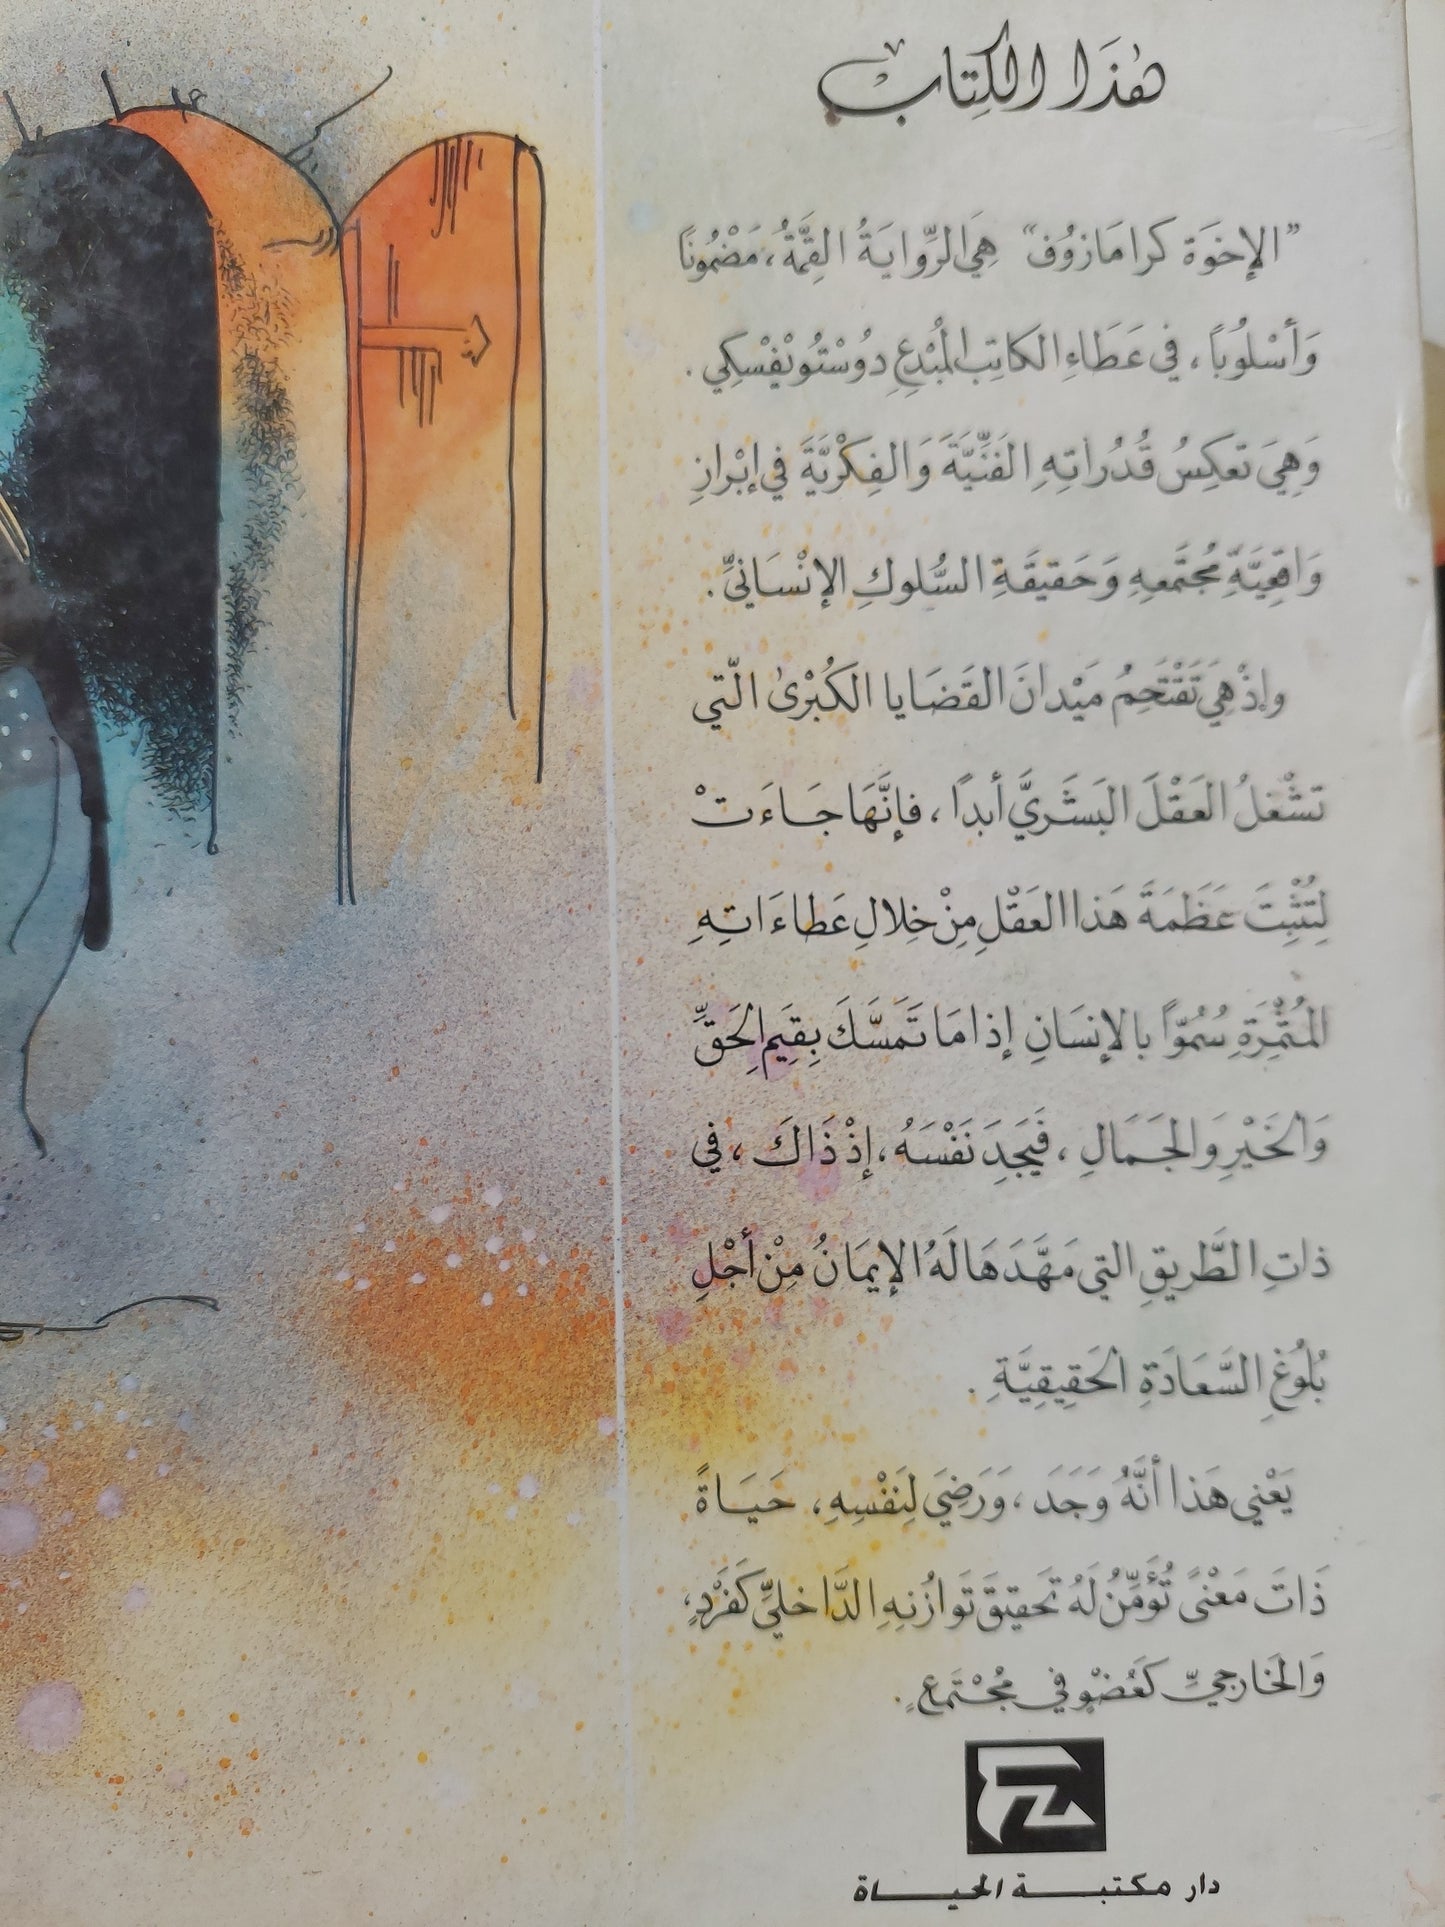 هٰذَا الكِتَابْ
”الإخوَة كرامَازوُف“ هِيَ الرِّوايَةُ القِمَّةُ، مَضْمُونًا
وَأسْلوُباً، في عَطَاءِ الكاتِبِ المُبْدِعِ دوُسْتُويْفْسكِي.
وَهِيَ تعكِسُ قُدُراتِهِ الفَنِّيَّةَ وَالفِكْرِيَّةَ في إبْرازِ
وَاقِعِيَّةِ مُجْتَمعِهِ وَحَقيقَةِ السُّلوكِ الإنْسَانيِّ.
وإذْ هِيَ تَقْتَحِمُ مَيْدانَ القَضَايا الكُبْرىٰ الّتي
تشْغلُ العَقْلَ البَشَريَّ أبداً، فإنَّهَا جَاءَتْ
لِتُثْبِتَ عَظَمَةَ هَذا العَقْلِ مِنْ خِلالِ عَطاءَاتِهِ
المُثمِّرَةِ سُمُوّاً بالإنسَانِ إذا مَا تَمَسَّكَ بِقِيَمِ الحَقِّ
وَالخَيْرِ وَالجَمَالِ، فَيَجَدِ نَفْسَهُ، إذْ ذَاكَ، في
ذاتِ الطَّريقِ التي مَهَّدَهَا لَهُ الإيمَانُ مِنْ أجْلِ
بُلوُغِ السَّعَادَةِ الحَقِيقِيَّةِ.
يَعْني هَذا أنَّهُ وَجَدَ، وَرَضِيَ لِنَفْسِهِ، حَيَاةً
ذَاتَ مَعْنىً تُؤَمِّنُ لَهُ تَحقيقَ تَوازُنِهِ الدَّاخليِّ كَفَرْدٍ،
وَالخارجيِّ كَعُضْوٍ في مُجْتَمعٍ.
دار مكتبة الحياة